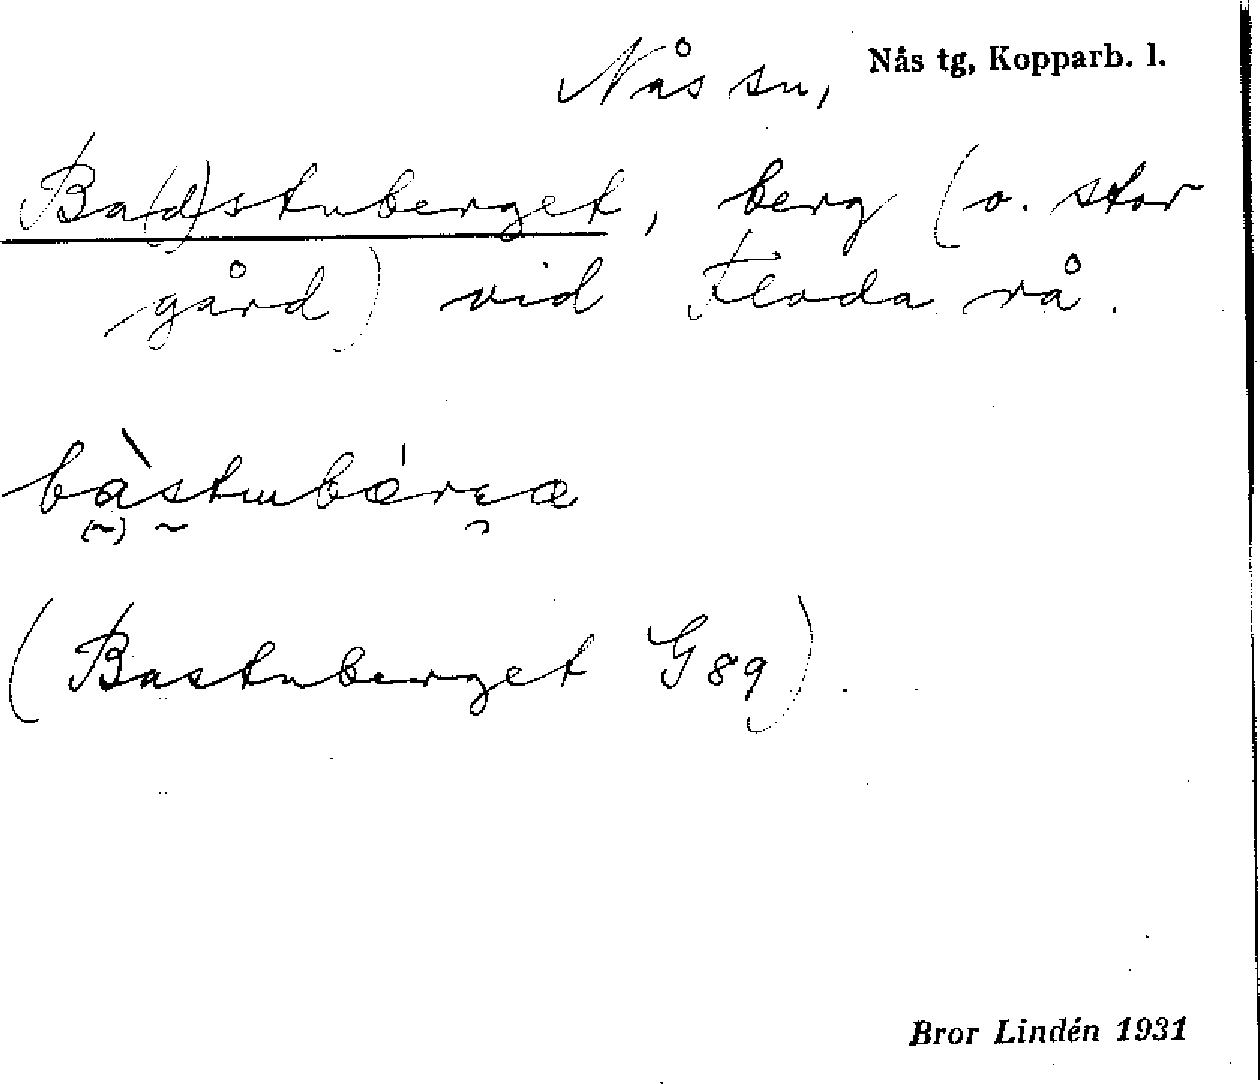 Nås sn, Nås tg, Kopparb. l.
Ba(d)stuberget, berg (o. stor
gård) vid Floda rå.
(Bastuberget G89).
Bror Lindén 1931